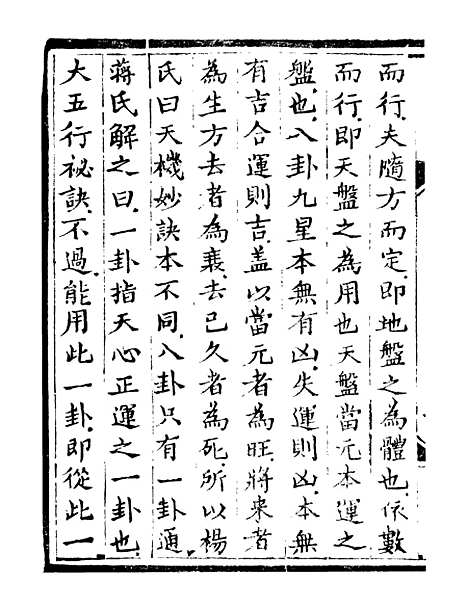 而行夫隨方而定即地盤之為體也依數
而行即天盤之為用也天盤當元本運之
盤也八卦九星本無有凶失運則凶本無
有吉合運則吉盖以當元者為旺將来者
為生方去者為衰去已久者為死所以楊
氏曰天機妙訣本不同八卦只有一卦通
蔣氏解之曰一卦指天心正運之一卦也
大五行祕訣不過能用此一卦即從此一